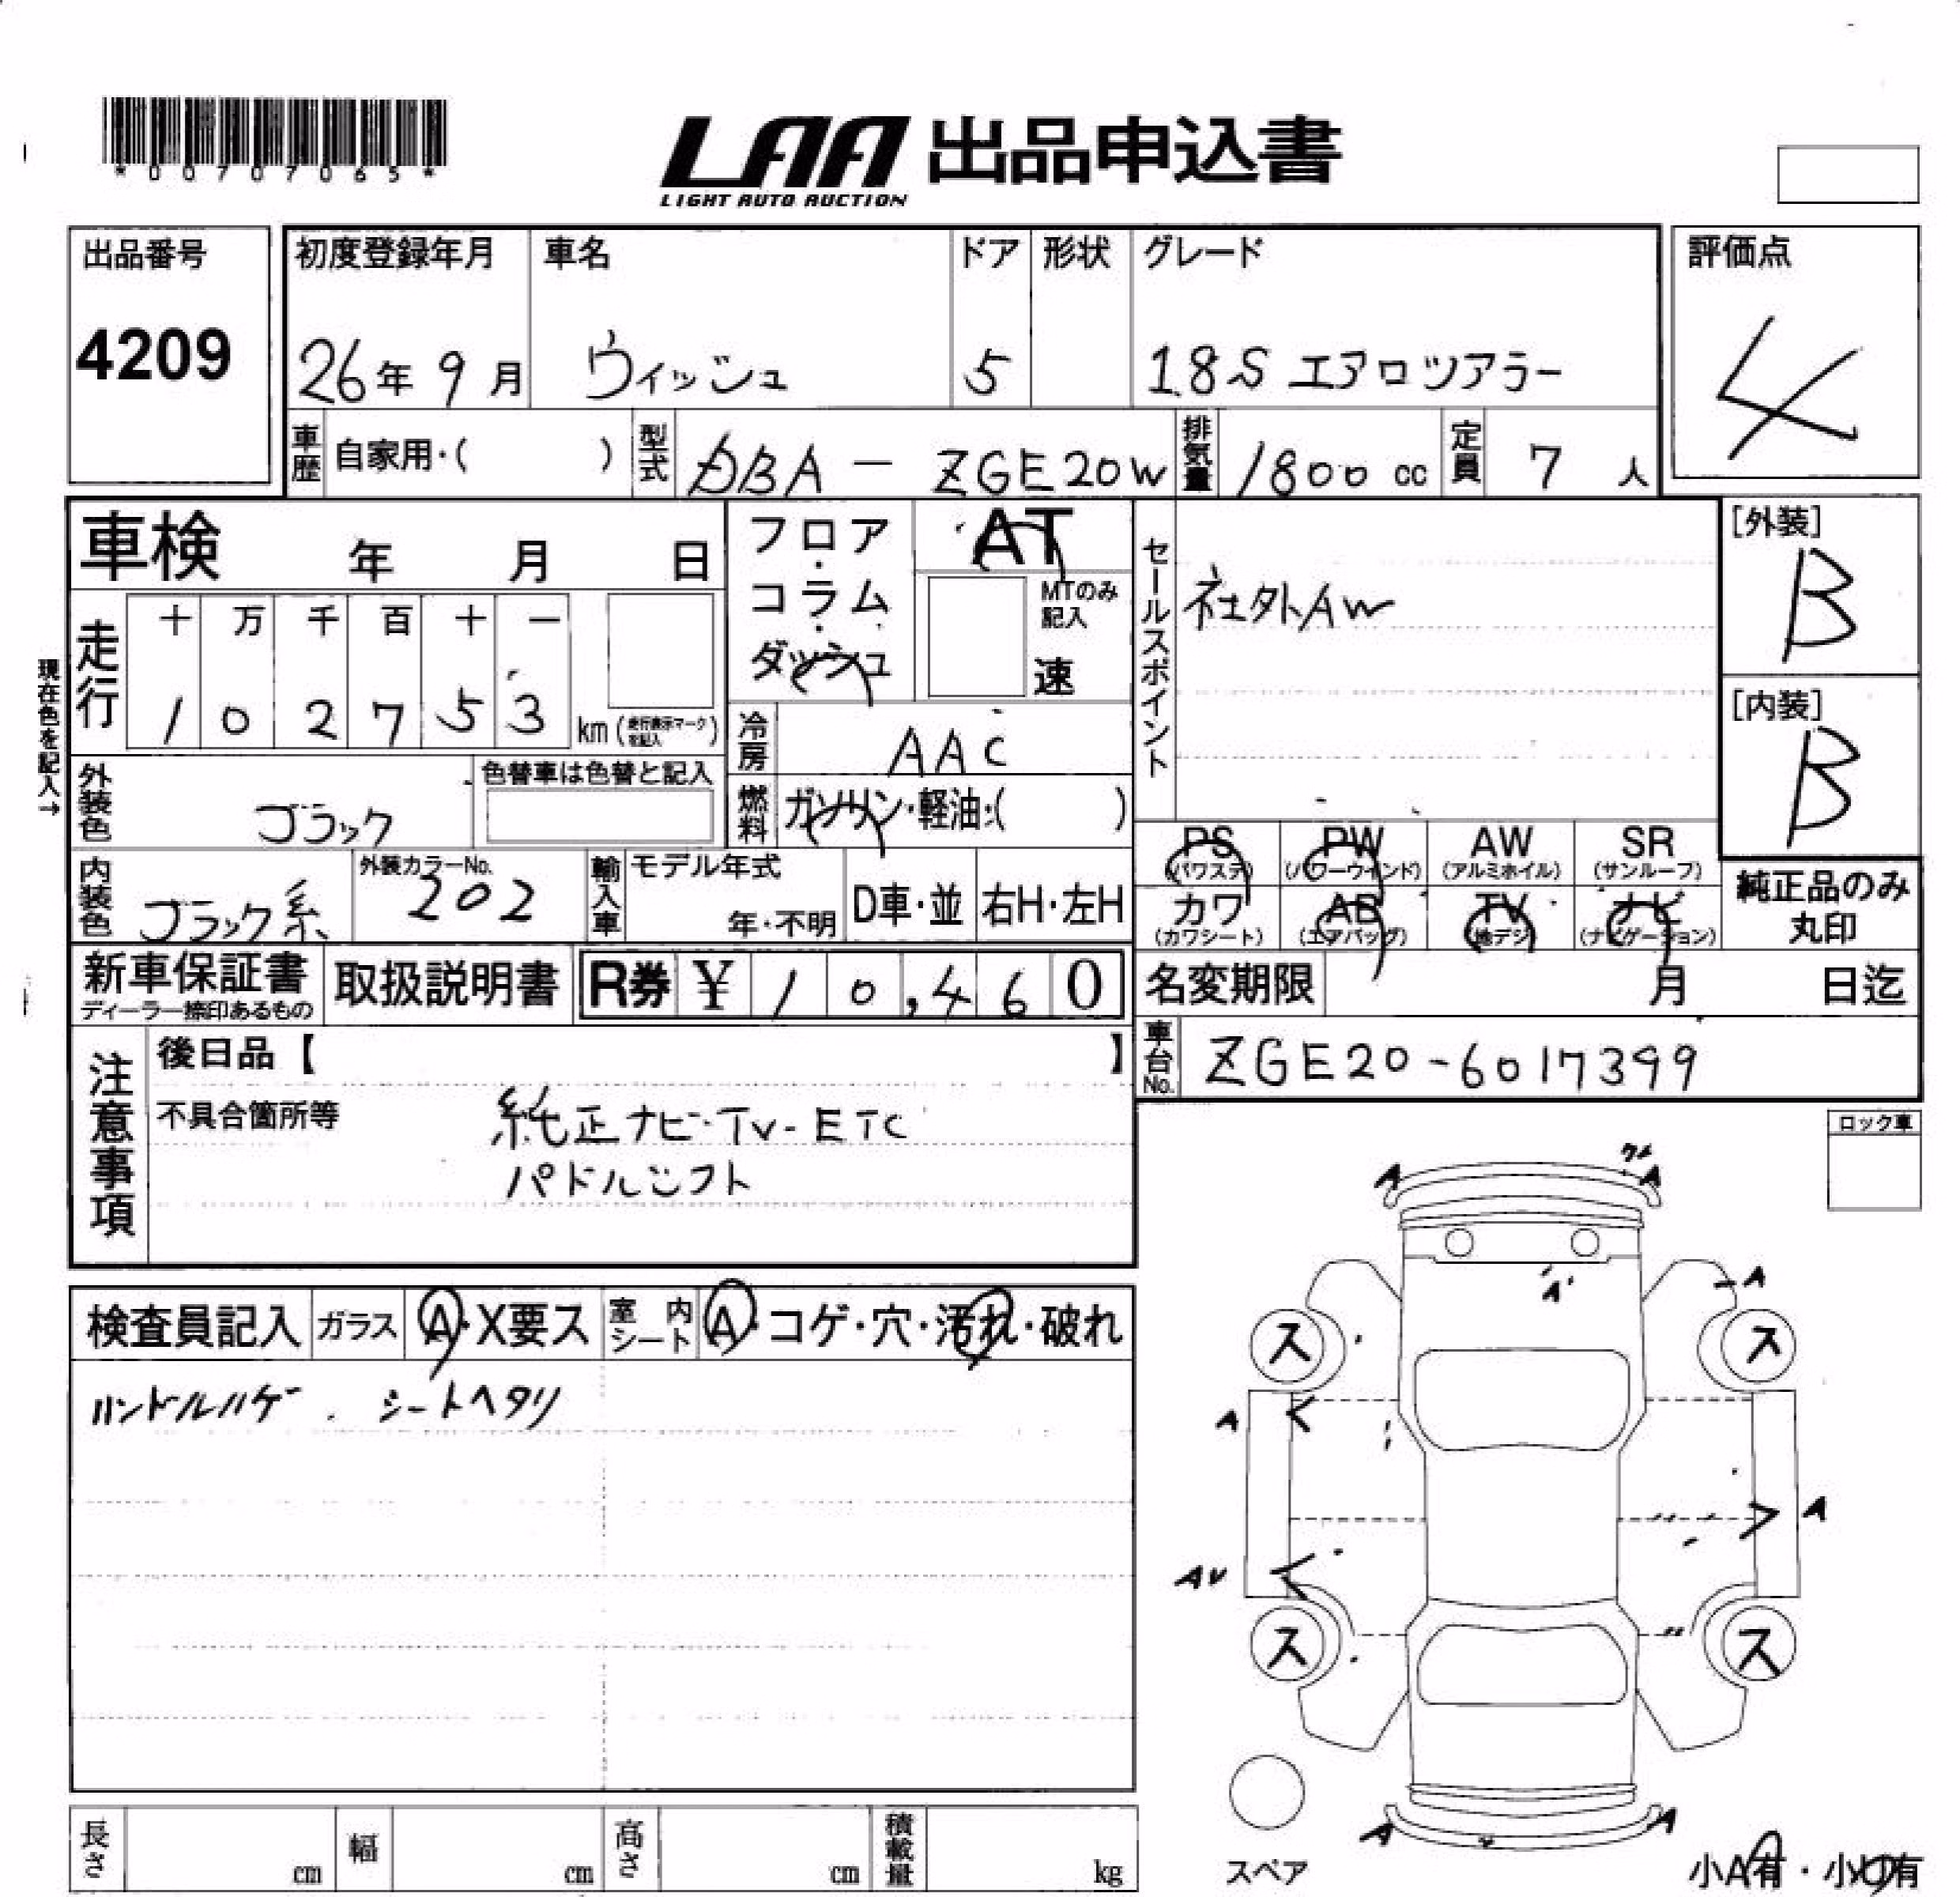 *00707065*
LAA 出品申込書
LIGHT AUTO AUCTION
出品番号
4209
初度登録年月
26年9月
車名
ウィッシュ
ドア
5
形状
グレード
1.8S エアロツアラー
評価点
4
車歴
自家用・( )
型式
DBA - ZGE20W
排気量
1800 cc
定員
7 人
車検 年 月 日
フロア・コラム・ダッシュ
AT
MTのみ記入
速
セールスポイント
社外AW
[外装]
B
[内装]
B
現在色を記入→
走行
十 万 千 百 十 一
1 0 2 7 5 3
km (走行表示マークを記入)
冷房
AAC
外装色
ブラック
色替車は色替と記入
燃料
ガソリン・軽油・( )
PS (パワステ)
PW (パワーウインド)
AW (アルミホイル)
SR (サンルーフ)
カワ (カワシート)
AB (エアバッグ)
TV (地デジ)
ナビ (ナビゲーション)
純正品のみ丸印
内装色
ブラック系
外装カラーNo.
202
輸入車
モデル年式
年・不明
D車・並
右H・左H
新車保証書
ディーラー捺印あるもの
取扱説明書
R券 ¥ 10,460
名変期限 月 日迄
車台No.
ZGE20-6017399
注意事項
後日品【 】
不具合箇所等
純正ナビ・TV・ETC
パドルシフト
ロック車
検査員記入
ガラス A・X要ス
室内シート A・コゲ・穴・汚れ・破れ
ハンドルハゲ . シートヘタリ
A A
A
A
ス ス
A
A
AV
ス ス
A A
スペア
小A有・小U有
長さ cm
幅 cm
高さ cm
積載量 kg